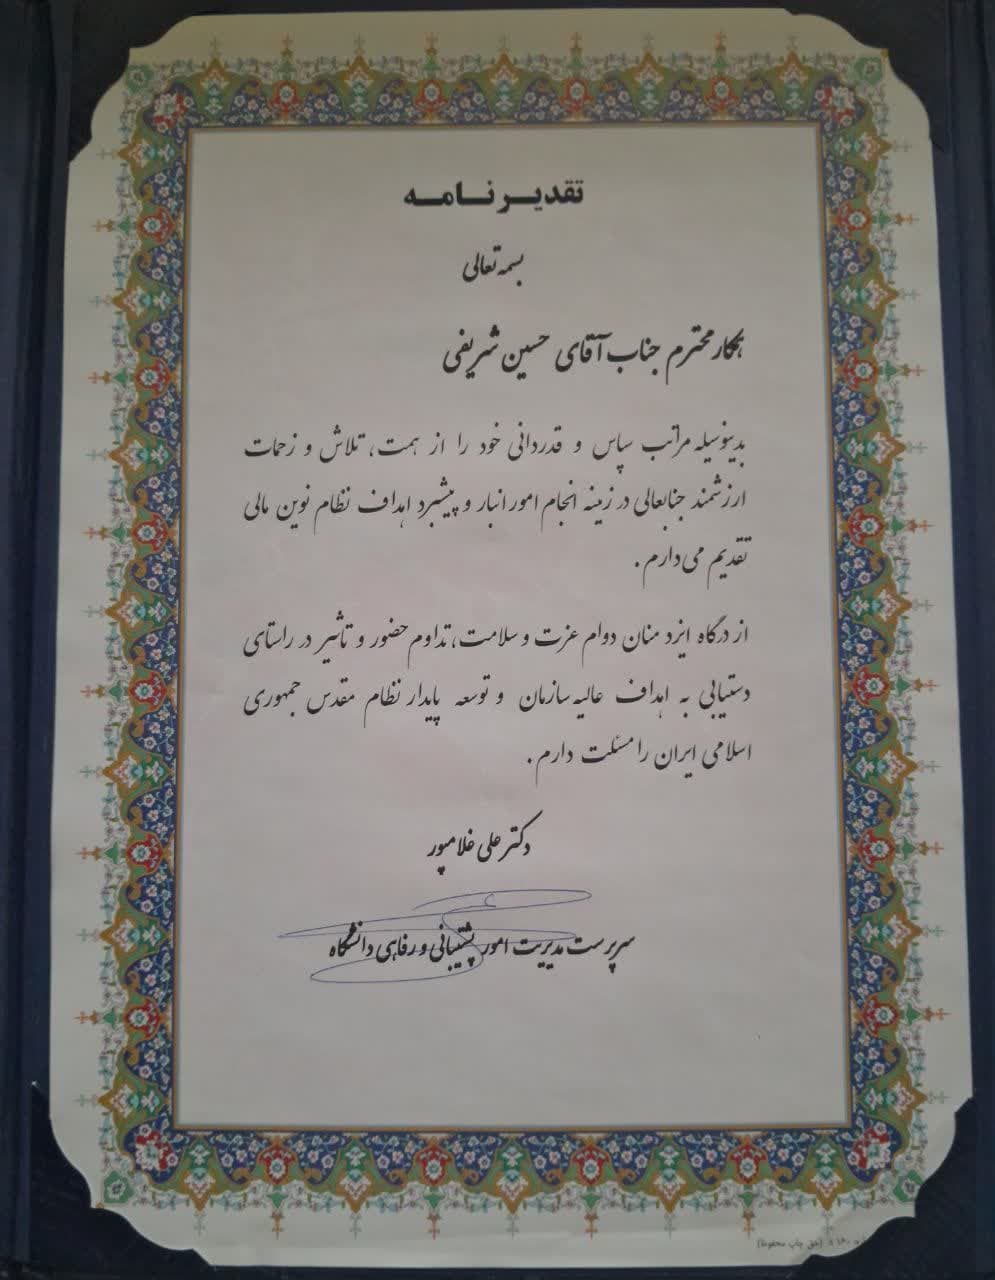 تقدیرنامه
بسمه تعالی
همکار محترم جناب آقای حسین شریفی
بدینوسیله مراتب سپاس و قدردانی خود را از همت، تلاش و زحمات
ارزشمند جنابعالی در زمینه انجام امور انبار و پیشبرد اهداف نظام نوین مالی
تقدیم می‌دارم.
از درگاه ایزد منان دوام عزت و سلامت، تداوم حضور و تاثیر در راستای
دستیابی به اهداف عالیه سازمان و توسعه پایدار نظام مقدس جمهوری
اسلامی ایران را مسئلت دارم.
دکتر علی غلامپور
سرپرست مدیریت امور پشتیبانی و رفاهی دانشگاه
(حق چاپ محفوظ)